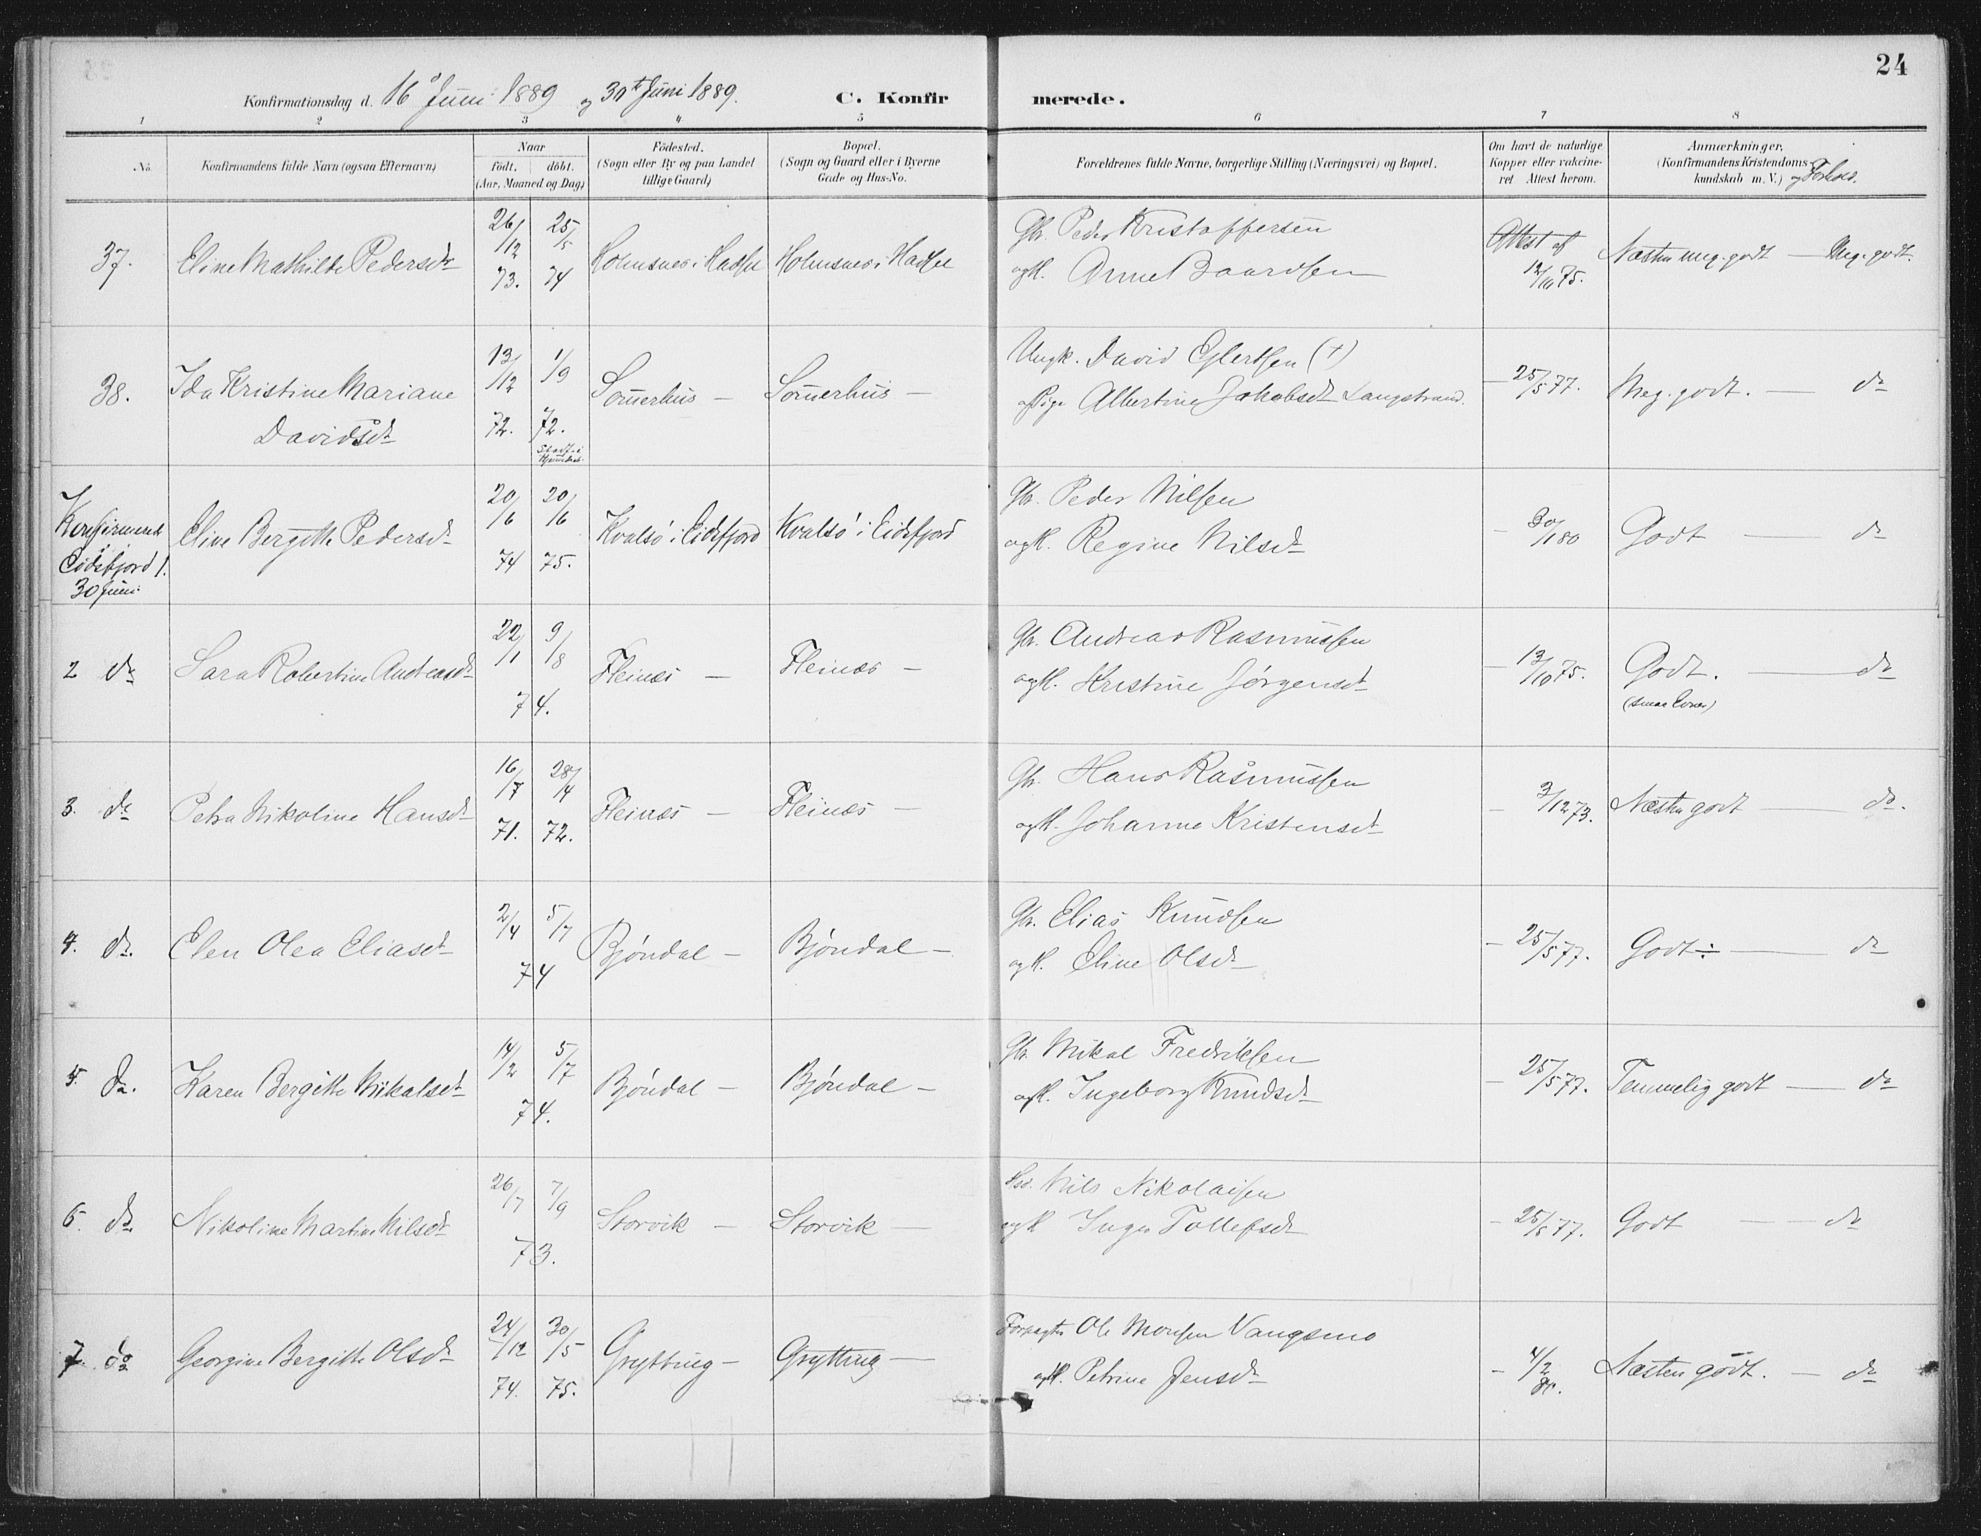 24
Konfirmationsdag d. 16 Juni 1889 og 30te Juni 1889. C. Konfir merede.
1 2 3 4 5 6 7 8
No.
Konfirmandens fulde Navn (ogsaa Efternavn)
Naar
födt. döbt.
(Aar, Maaned og Dag)
Födested.
(Sogn eller By og paa Landet
tillige Gaard)
Bopæl.
(Sogn og Gaard eller i Byerne
Gade og Hus-No.
Forældrenes fulde Navne, borgerlige Stilling (Næringsvei) og Bopæl.
Om havt de naturlige
Kopper eller vakcine-
ret Attest herom.
Anmærkninger.
(Konfirmandens Kristendoms-
kundskab m. V.) og Forhold.
37. Eline Mathilde Pedersdt 26/12 73. 25/5 74 Holmsnes i Hadsel Holmsnes i Hadsel
Gb. Peder Kristoffersen
og K. Anne Baardsen
Attest af 12/10 75. Næsten meg. godt — Meg. godt.
38. Ida Kristine Mariane
Davidsdt
13/12 72. 1/9 72. Sommerhus — Sommerhus —
Ungk. David Eilertsen (†)
og Pige Albertine Jakobsdt Langstrand.
— 25/5 77. Meg. godt. — do
Konfirmerede
i Eidsfjord 1.
30 Juni
Eline Bergitte Pedersdt 20/6 74 20/6 75. Kvalsö i Eidsfjord Kvalsö i Eidsfjord
Gb. Peder Nilsen
og K. Regine Nilsdt
— 30/1 80 Godt — do
2 do Sara Robertine Andreasdt 22/1 9/8 74. Fleines — Fleines —
Gb. Andreas Rasmussen
og K. Kristine Jørgensdt
— 13/10 75. Godt. — do
(smaa Evner)
3. do Petra Nikoline Hansdt 16/7 71. 28/4 72. Fleines — Fleines —
Gb. Hans Rasmussen
og K. Johanne Kristensdt
— 3/12 73. Næsten godt — do.
4. do. Elen Olea Eliasdt 2/4 5/7 74 Bjöndal — Bjöndal —
Gb. Elias Knudsen
og K. Eline Olsdt
— 25/5 77. Godt ÷ — do
5. do. Karen Bergitte Mikalsdt 14/2 5/7 74. Bjöndal — Bjöndal —
Gb. Mikal Fredriksen
og K. Ingeborg Knudsdt
— 25/5 77. Temmelig godt — do
6. do Nikoline Martine Nilsdt 26/7 7/9 73. Storvik — Storvik —
Nils Nikolaisen
og K Inger Tollefsdt
— 25/5 77. Godt — do
7. do Georgine Bergitte Olsdt 24/12 74. 30/5 75. Grytting — Grytting —
Forpagter Ole Monsen Vangsmo
og K. Petrine Jensdt
— 4/2 Næsten godt. — do